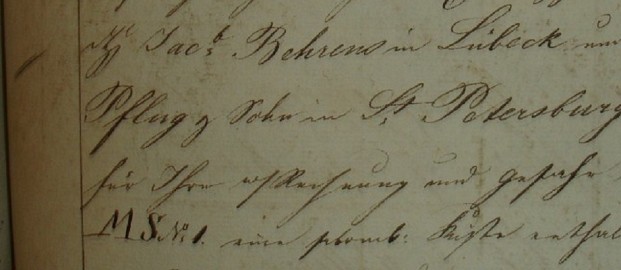 Jacb Behrens in Lübeck und
Pflug & Sohn in St. Petersburg
für Ihre Rechnung und Gefahr
MS. No 1. eine plomb: Kiste enthal